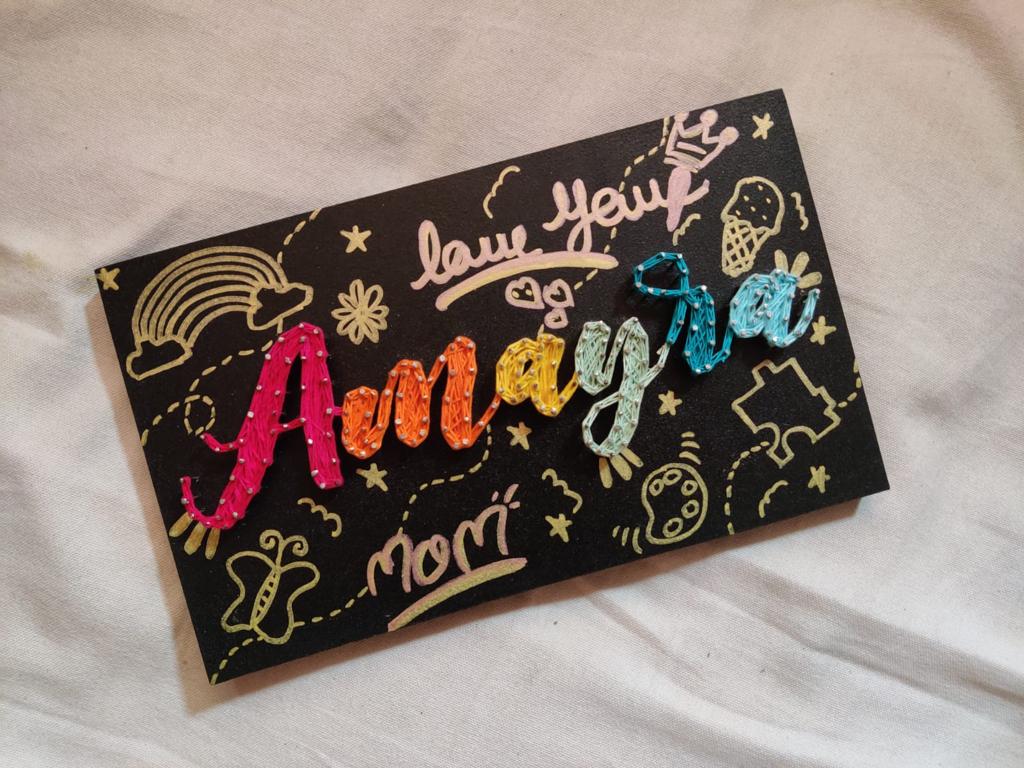 love Your
Amayra
MOM